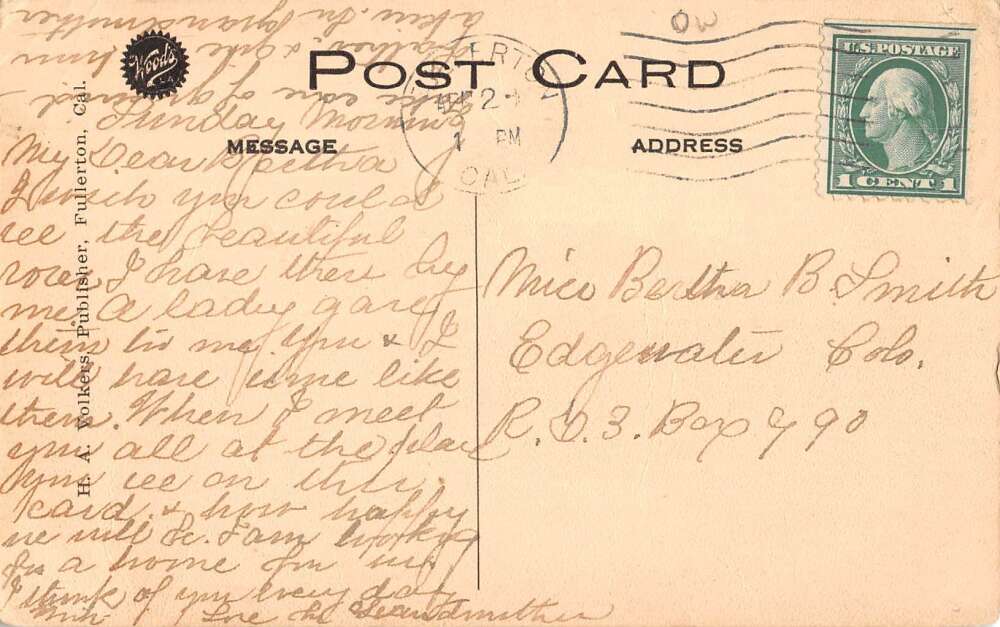 Wood's
POST CARD
MESSAGE
ADDRESS
H. A. Volkers, Publisher, Fullerton, Cal.
U.S. POSTAGE
1 CENT 1
PM
CAL.
OW
Sunday Morning
My Dear Bertha
I wish you could
see the beautiful
roses I have there by
me A lady gave
them to me. You & I
will have some like
them. When I meet
you all at the place
you see on this
card. & how happy
we will be. I am looking
for a home for us
I think of you every day
With Love
Grandmother
take care of
Grandmother
Mice Bertha B Smith
Edgewater Colo.
R. D. 3. Box 790